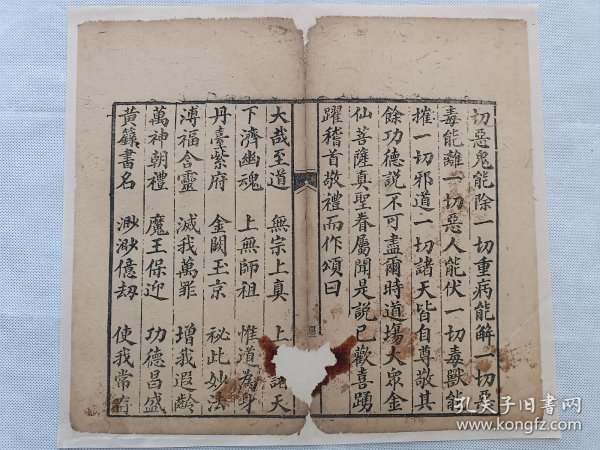 切惡鬼能除一切重病能解一切惡
毒能離一切惡人能伏一切毒獸能
摧一切邪道一切諸天皆自尊敬其
餘功德說不可盡爾時道場大眾金
仙菩薩真聖眷屬聞是說已歡喜踴
躍稽首敬禮而作頌曰
大哉至道 無宗上真 上 諸天
下濟幽魂 上無師祖 惟道為身
丹臺紫府 金闕玉京 祕此妙法
溥福含靈 滅我萬罪 增我遐齡
萬神朝禮 魔王保迎 功德昌盛
黃籙書名 渺渺億劫 使我常存
孔夫子旧书网
www.kongfz.com